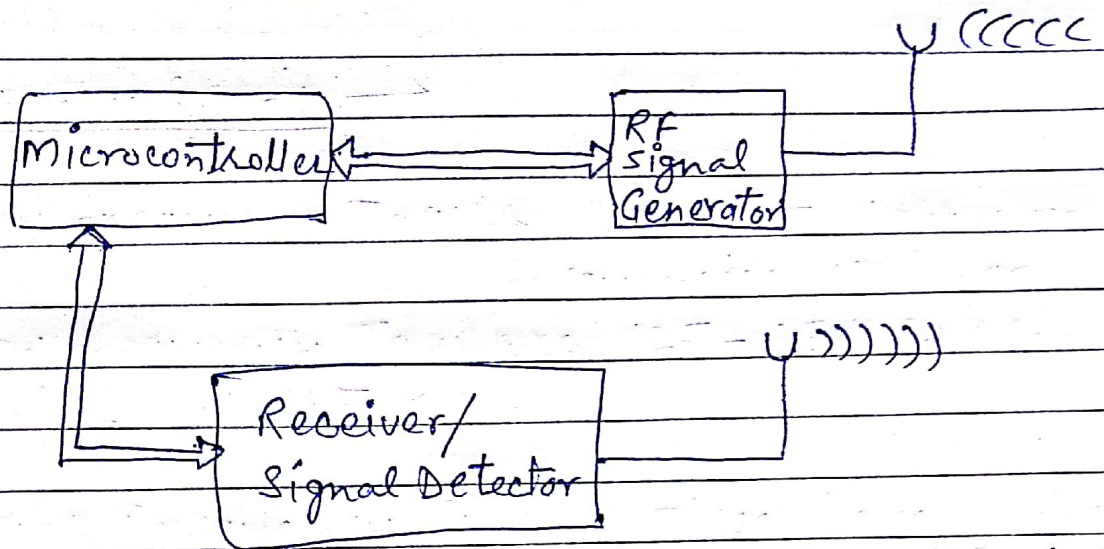 Microcontroller
RF
Signal
Generator
Receiver/
Signal Detector